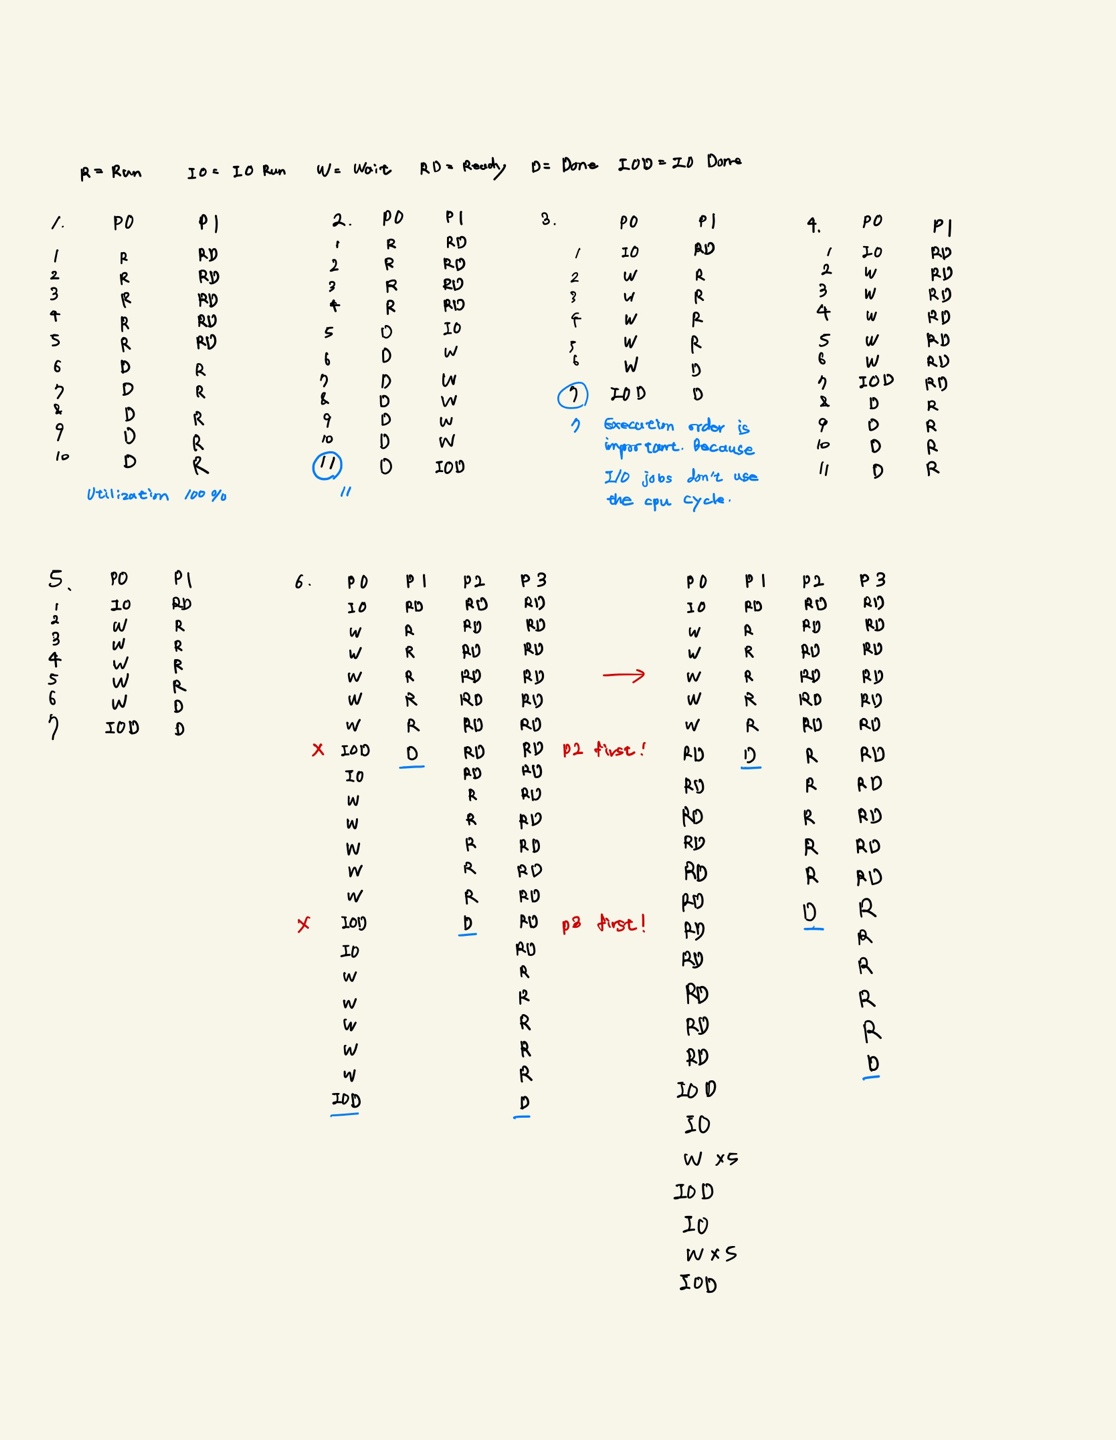 R = Run IO = IO Run W = Wait RD = Ready D = Done IOD = IO Done
1. P0 P1
1 R RD
2 R RD
3 R RD
4 R RD
5 R RD
6 D R
7 D R
8 D R
9 D R
10 D R
Utilization 100%
2. P0 P1
1 R RD
2 R RD
3 R RD
4 R RD
5 D IO
6 D W
7 D W
8 D W
9 D W
10 D W
11 D IOD
11
3. P0 P1
1 IO RD
2 W R
3 W R
4 W R
5 W R
6 W D
7 IOD D
7 Execution order is
important. Because
I/O jobs don't use
the cpu cycle.
4. P0 P1
1 IO RD
2 W RD
3 W RD
4 W RD
5 W RD
6 W RD
7 IOD RD
8 D R
9 D R
10 D R
11 D R
5. P0 P1
1 IO RD
2 W R
3 W R
4 W R
5 W R
6 W D
7 IOD D
6. P0 P1 P2 P3
IO RD RD RD
W R RD RD
W R RD RD
W R RD RD
W R RD RD
W R RD RD
x IOD D RD RD P2 first!
IO RD RD
W R RD
W R RD
W R RD
W R RD
W R RD
x IOD D RD P3 first!
IO RD
W R
W R
W R
W R
W R
IOD D
→
P0 P1 P2 P3
IO RD RD RD
W R RD RD
W R RD RD
W R RD RD
W R RD RD
W R RD RD
RD D R RD
RD R RD
RD R RD
RD R RD
RD R RD
RD D R
RD R
RD R
RD R
RD R
RD D
IOD
IO
W x5
IOD
IO
W x5
IOD